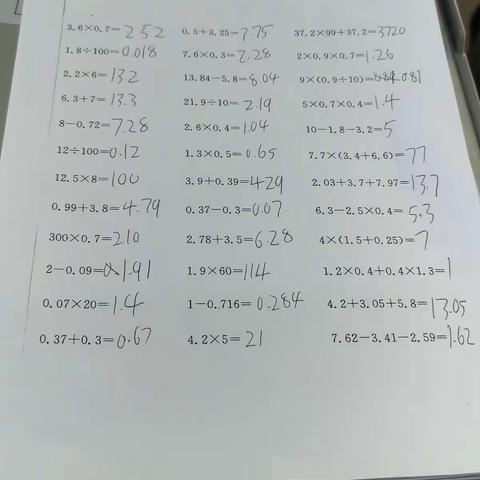 3.6×0.7=2.52 0.5+3.25=3.75 37.2×99+37.2=3720
1.8÷100=0.018 7.6×0.3=2.28 2×0.9×0.7=1.26
2.2×6=13.2 13.84-5.8=8.04 9×(0.9÷10)=0.81
6.3+7=13.3 21.9÷10=2.19 5×0.7×0.4=1.4
8-0.72=7.28 2.6×0.4=1.04 10-1.8-3.2=5
12÷100=0.12 1.3×0.5=0.65 7.7×(3.4+6.6)=77
12.5×8=100 3.9+0.39=4.29 2.03+3.7+7.97=13.7
0.99+3.8=4.79 0.37-0.3=0.07 6.3-2.5×0.4=5.3
300×0.7=210 2.78+3.5=6.28 4×(1.5+0.25)=7
2-0.09=1.91 1.9×60=114 1.2×0.4+0.4×1.3=1
0.07×20=1.4 1-0.716=0.284 4.2+3.05+5.8=13.05
0.37+0.3=0.67 4.2×5=21 7.62-3.41-2.59=1.62